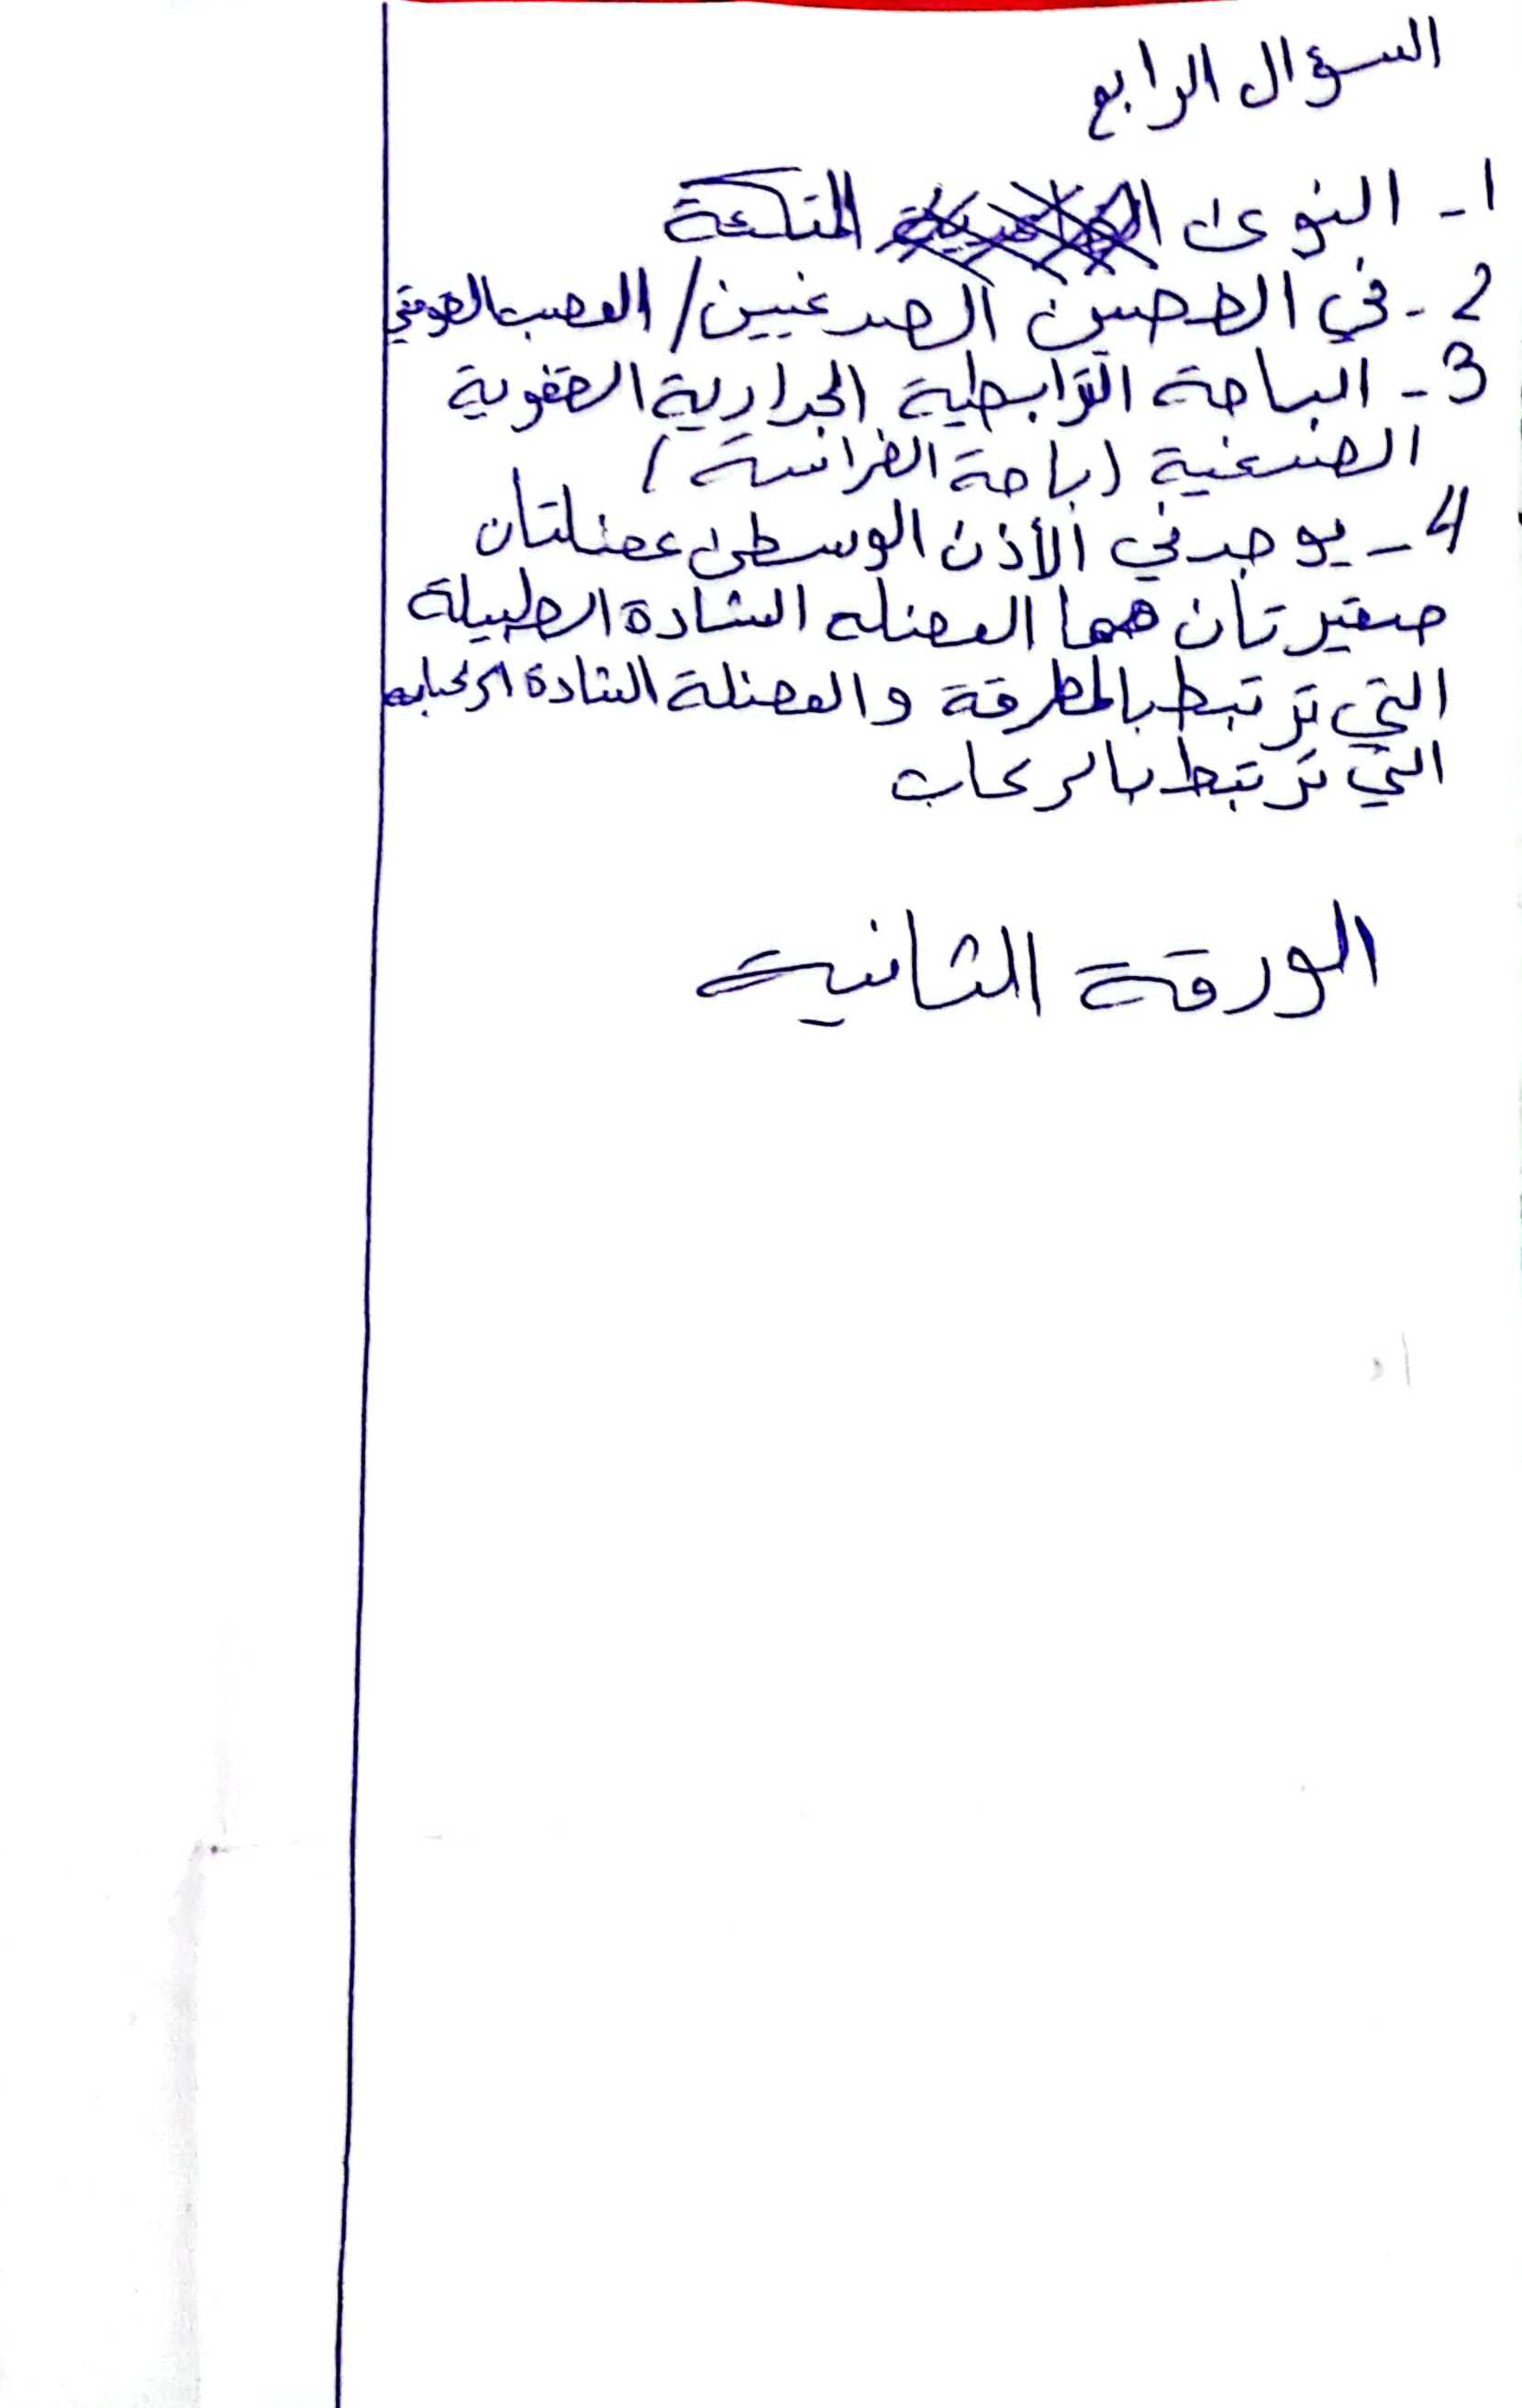 السؤال الرابع
1- النوى المتكئة
2- في الفصين الصدغيين / العصب القوقعي
3- الباحة الترابطية الجدارية القفوية
الصدغية (باحة الفراسة)
4- يوجد في الأذن الوسطى عضلتان
صغيرتان هما العضلة الشادة الطبيلة
التي ترتبط بالمطرقة والعضلة الشادة الركابية
التي ترتبط بالركاب
الورقة الثانية